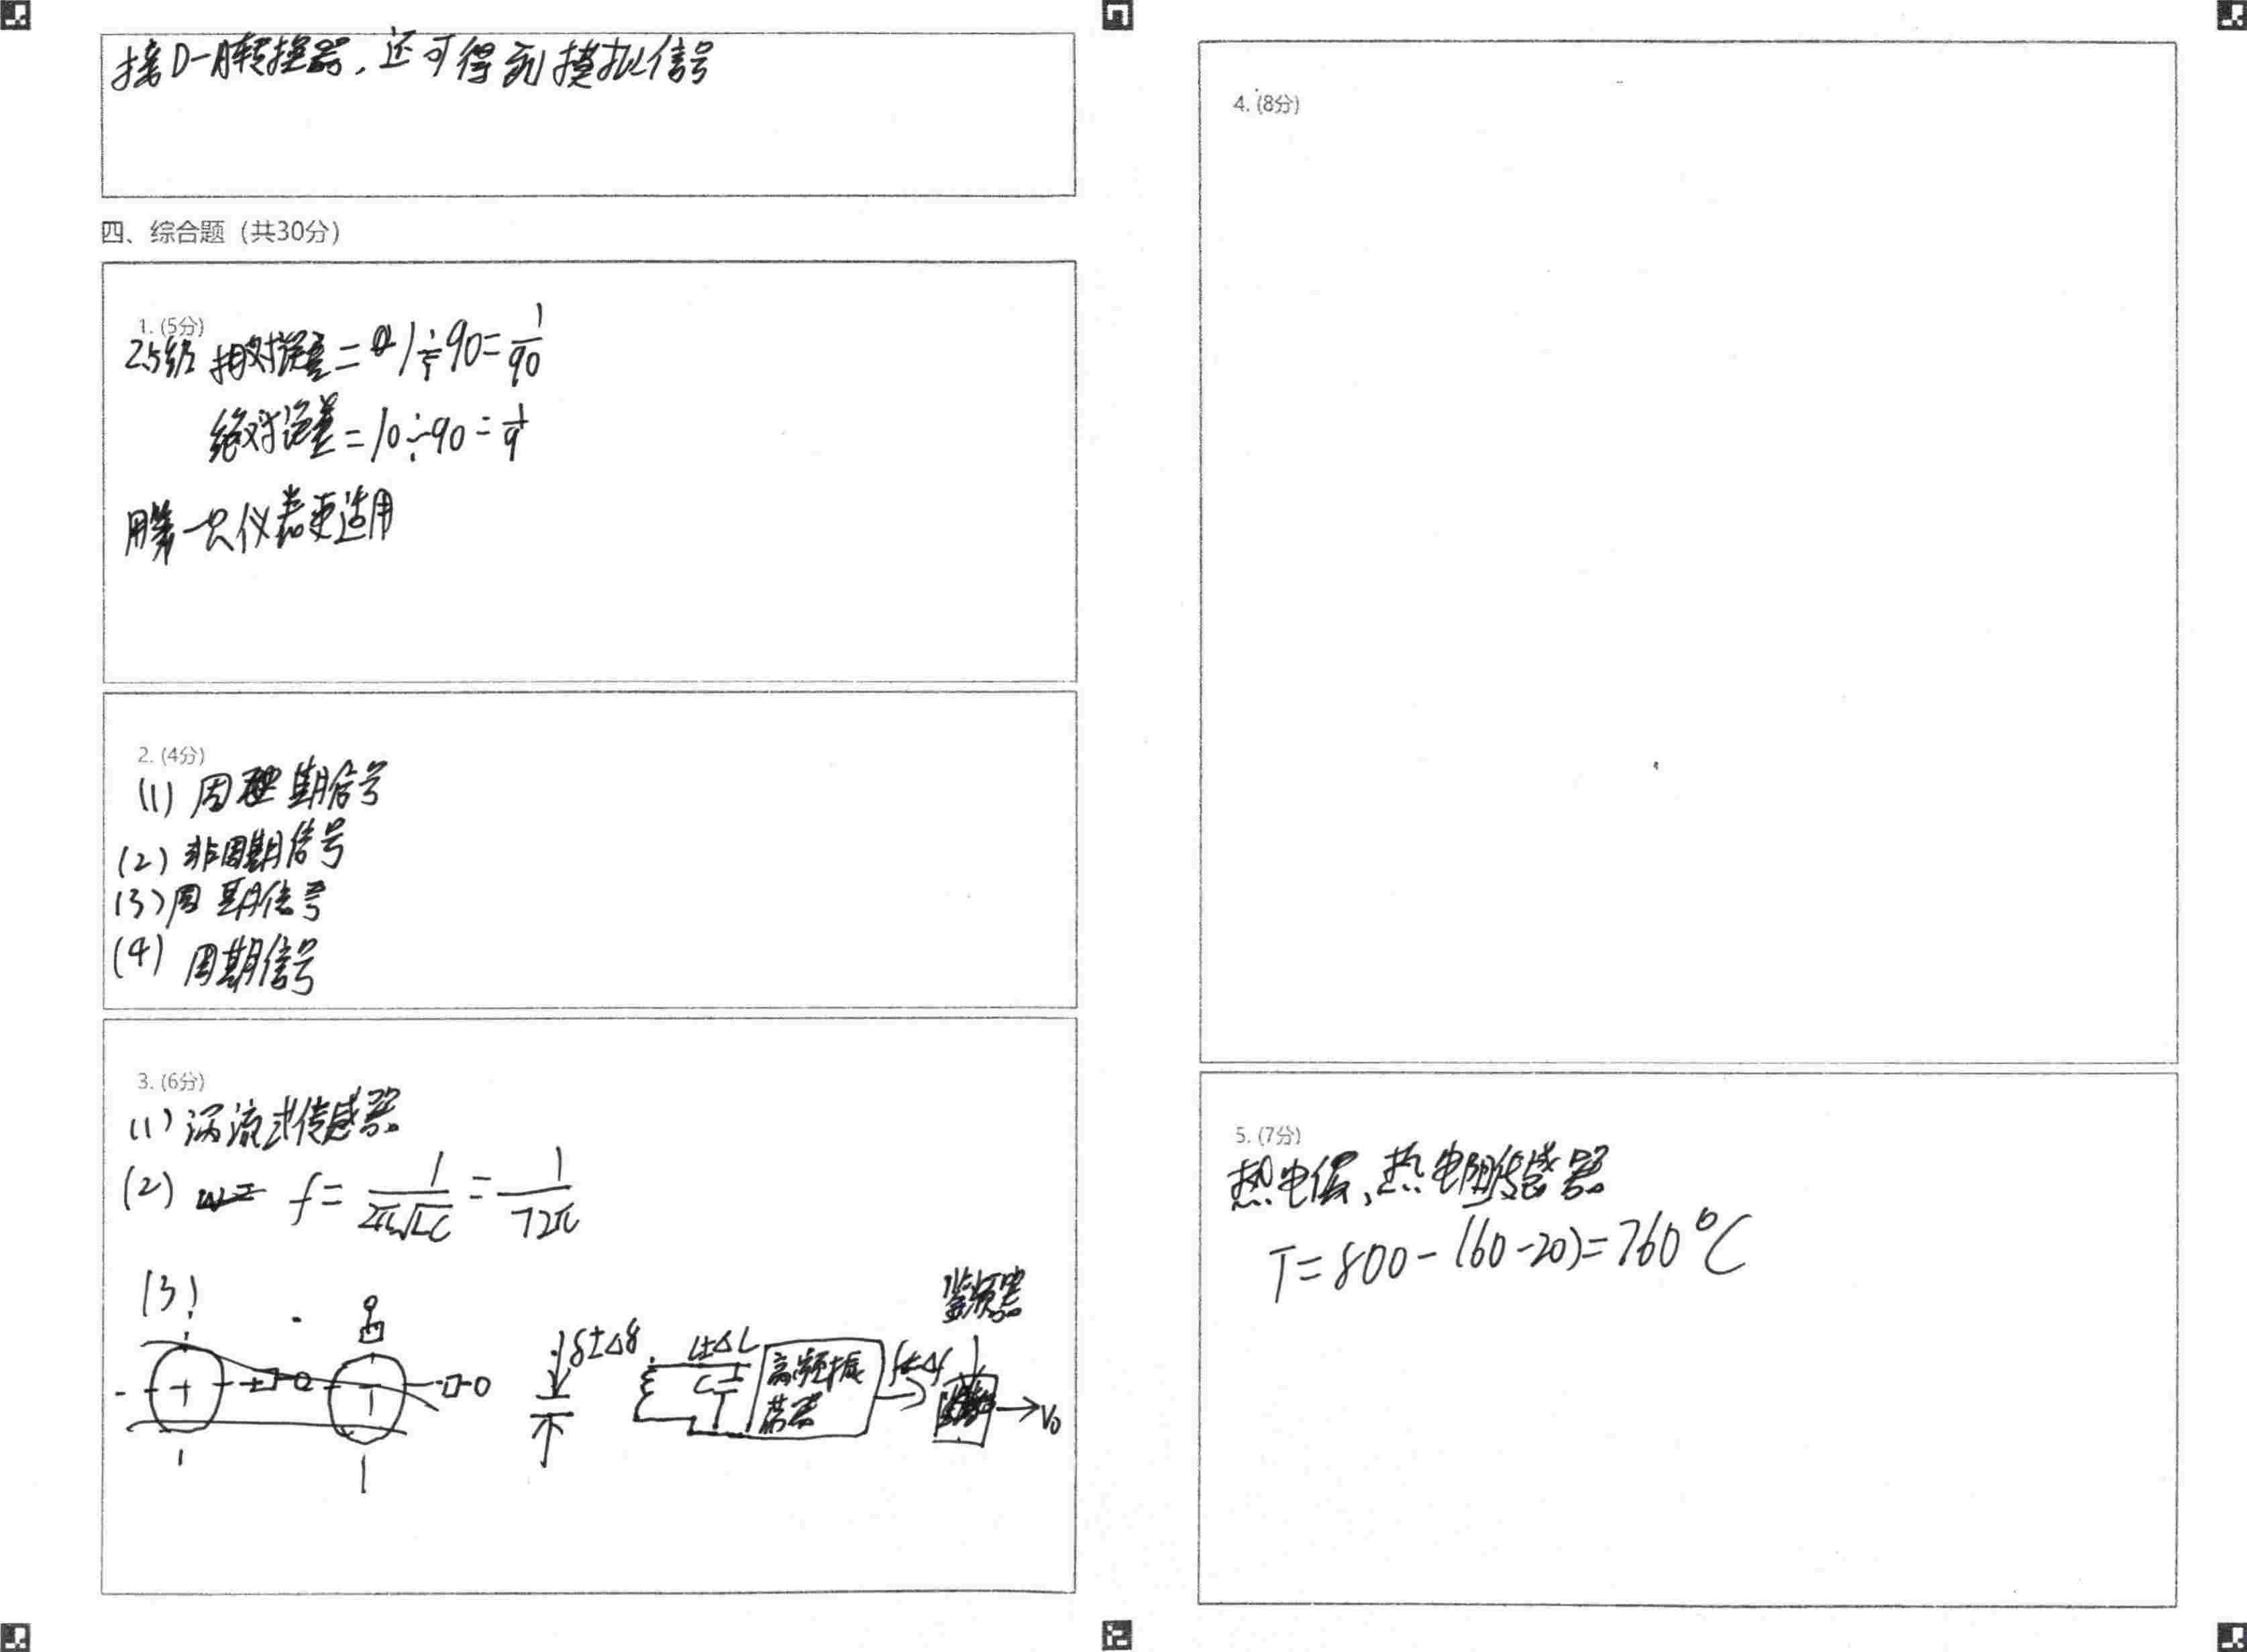 接D-A转换器,还可得到模拟信号
四、综合题(共30分)
1. (5分)
2.5级 相对误差=1÷90=1/90
绝对误差=10÷90=1/9
用第一只仪表更适用
2. (4分)
(1) 周期信号
(2) 非周期信号
(3) 周期信号
(4) 周期信号
3. (6分)
(1) 涡流式传感器
(2) f=1/2π√LC=1/72π
(3)
鉴频器
δ±Δδ
L±ΔL
C
高频振荡器
f±Δf
V0
4. (8分)
5. (7分)
热电偶、热电阻传感器
T=800-(60-20)=760℃